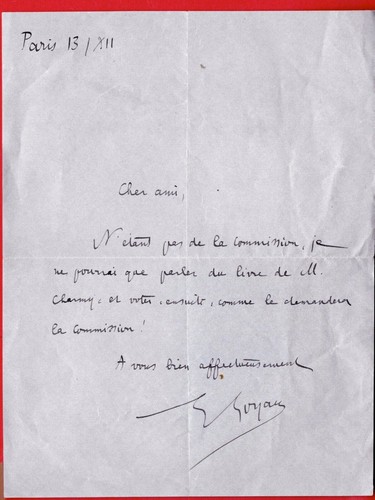 Paris 13/XII
Cher ami,
N'étant pas de la commission, je
ne pourrai que parler du livre de M.
Charmy, et voter, ensuite, comme le demandera
la commission !
A vous bien affectueusement
G Goyau